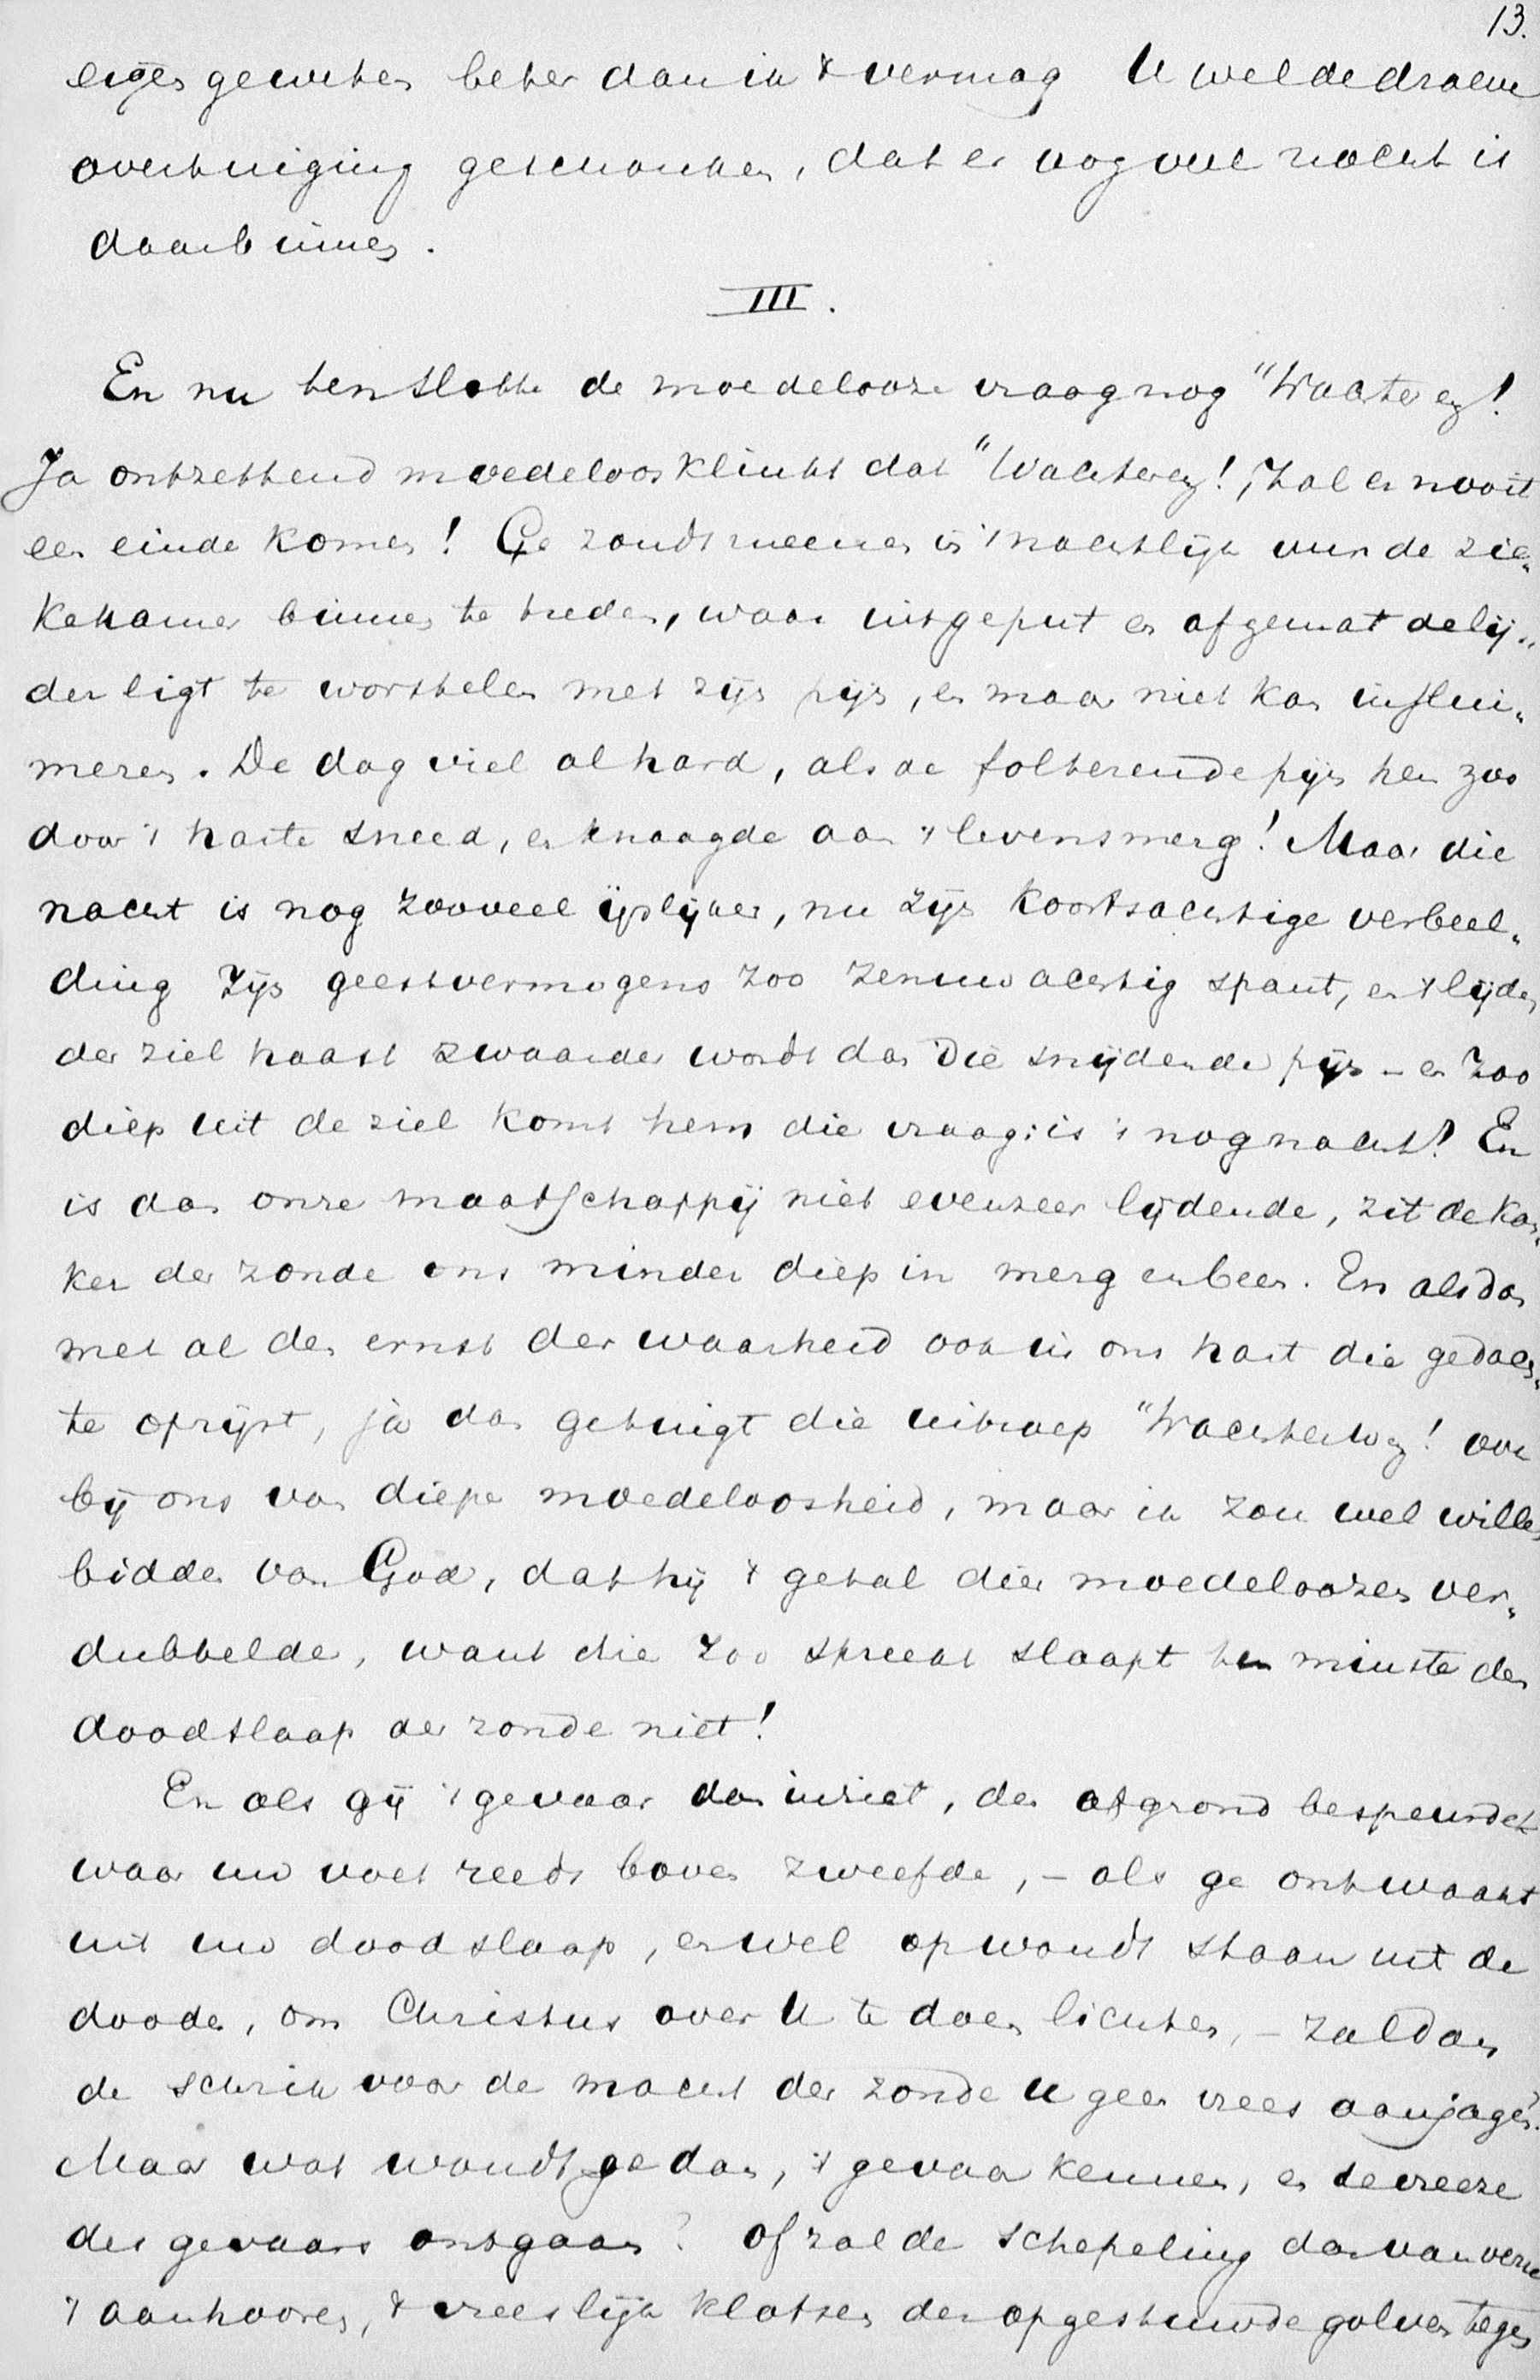 13.
eigen geweten beter dan ik 't vermag U wel de droeve
overtuiging geschonken, dat er nog veel nacht is
daarbinnen.
III.
En nu ten slotte de moedelooze vraag nog "Wachter ez!
Ja ontzettend moedeloos klinkt dat "Wachter ez!, Zal er nooit
een einde komen! Ge zoudt meenen in 't nachtlijk uur de zie„
kekamer binnen te treden, waar uitgeput en afgemat de lij„
der ligt te worstelen met zijn pijn, en maar niet kan inslui„
meren. De dag viel al hard, als de folterende pijn hem zoo
door 't harte sneed, en knaagde aan 't levensmerg! Maar die
nacht is nog zooveel ijslijker, nu zijn koortsachtige verbeel„
ding zijn geestvermogens zoo zenuwachtig spant, en 't lijden
der ziel haast zwaarder wordt dan die snijdende pijn – en zoo
diep uit de ziel komt hem die vraag: is 't nog nacht! En
is dan onze maatschappij niet evenzeer lijdende, zit de kan„
ker der zonde ons minder diep in merg en been. En als dan
met al den ernst der waarheid ook in ons hart die gedach„
te oprijst, ja dan getuigt die uitroep "Wachter ez! ook
bij ons van diepe moedeloosheid, maar ik zou wel willen
bidden van God, dat hij 't getal dier moedeloozen ver„
dubbelde, want die zoo spreekt slaapt ten minste den
doodslaap der zonde niet!
En als gij 't gevaar dan inziet, den afgrond bespeurdet
waar uw voet reeds boven zweefde, – als ge ontwaakt
uit uw doodslaap, en wel op woudt staan uit de
dooden, om Christus over U te doen lichten, – zal dan
de schrik voor de macht der zonde U geen vrees aanjagen?
Maar wat woudt ge dan, 't gevaar kennen, en de vreeze
des gevaars ontgaan? Of zal de schepeling dan van verre
't aanhooren, 't vreeslijk klotsen der opgestuwde golven tegen